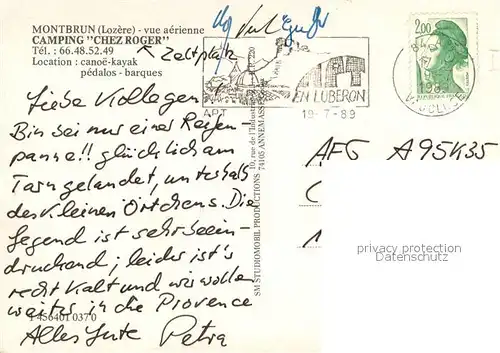 MONTBRUN (Lozère) - vue aérienne
CAMPING "CHEZ ROGER"
Tél. : 66.48.52.49
Zeltplatz
Location : canoë-kayak
pédalos - barques
Liebe Kollegen,
Bin bei nur einer Reifen
panne!! glücklich am
Tarn gelandet, unterhalb
des kleinen Örtchens. Die
Gegend ist sehr beein-
druckend; leider ist's
recht kalt und wir wollen
weiter in die Provence
Alles Gute Petra
1 456401 0370
APT
EN LUBERON
19-7-89
2,00
VAUCLUSE
SM STUDIOMOBIL PRODUCTIONS
10, rue de l'Industrie
74105 ANNEMASSE
AFG A95K35
privacy protection
Datenschutz